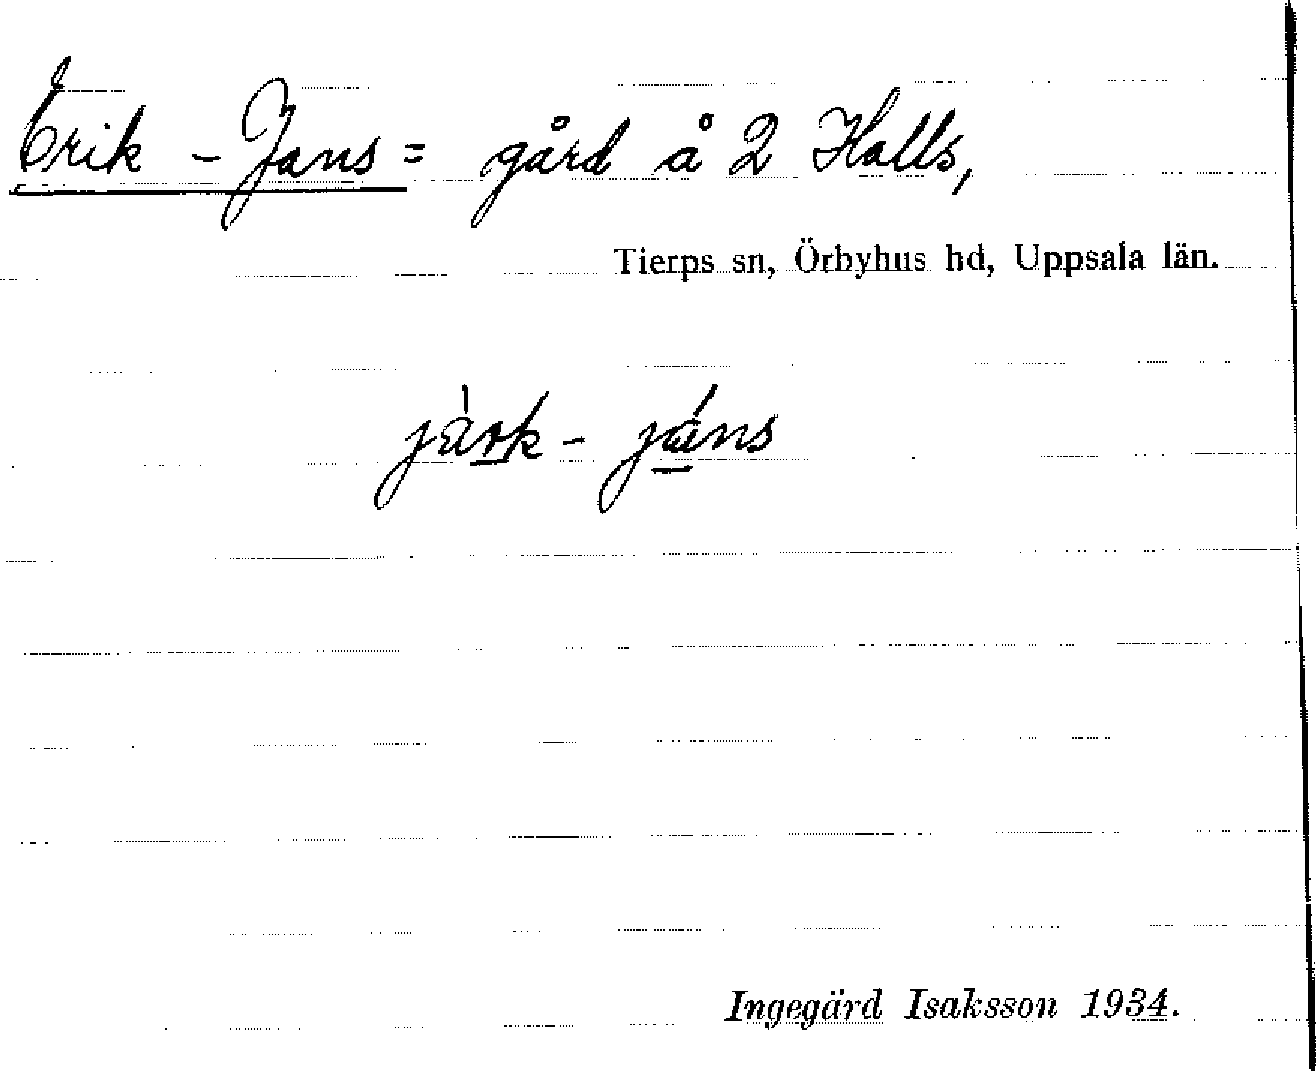 Erik - Jans = gård å 2 Halls,
Tierps sn, Örbyhus hd, Uppsala län.
jä̀rk - jáns
Ingegärd Isaksson 1934.